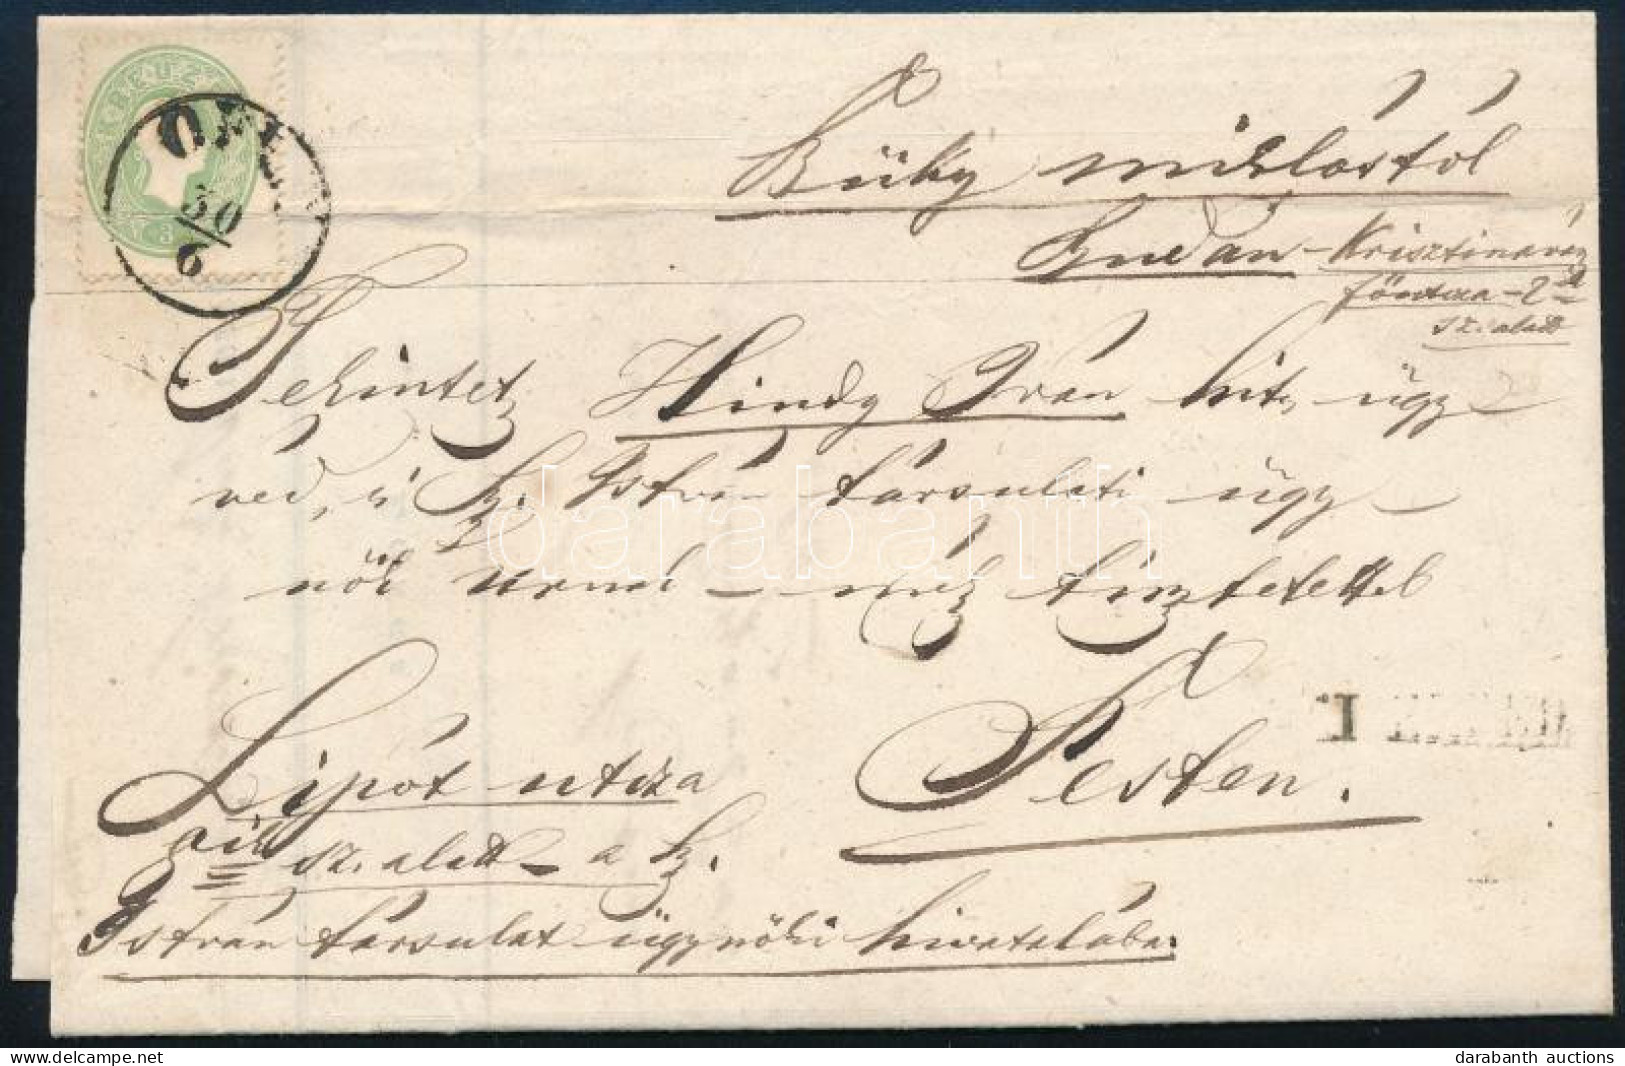 OFEN
30
6
Büky miklóstól
Budán - Krisztinavár
főutcza - 2ik
sz. alatt
Tekintetz Hindy Iván hit. ügy
véd, s Sz. István társulati ügy
nök urnak - nagy tisztelettel
Pesten.
Lipót utcza
sz. alatt - a Sz.
István társulat ügynöki hivatalába.
darabanth
darabanth auctions